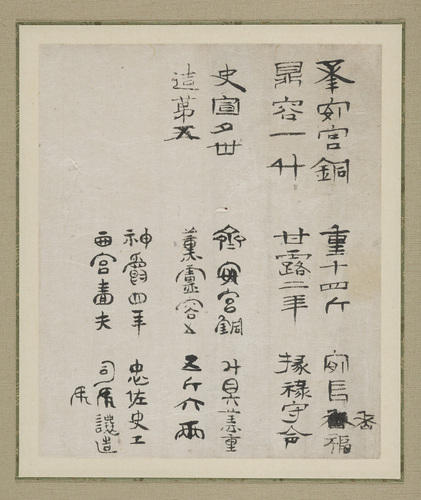 承安宮銅
鼎容一升
重十四斤
甘露二年
長福
掾祿守令
史宣夕世
造第五
齊安宮銅
薰壚容五
升具盖重
五斤六兩
神爵四年
西宮嗇夫
忠佐史工
司馬讓造